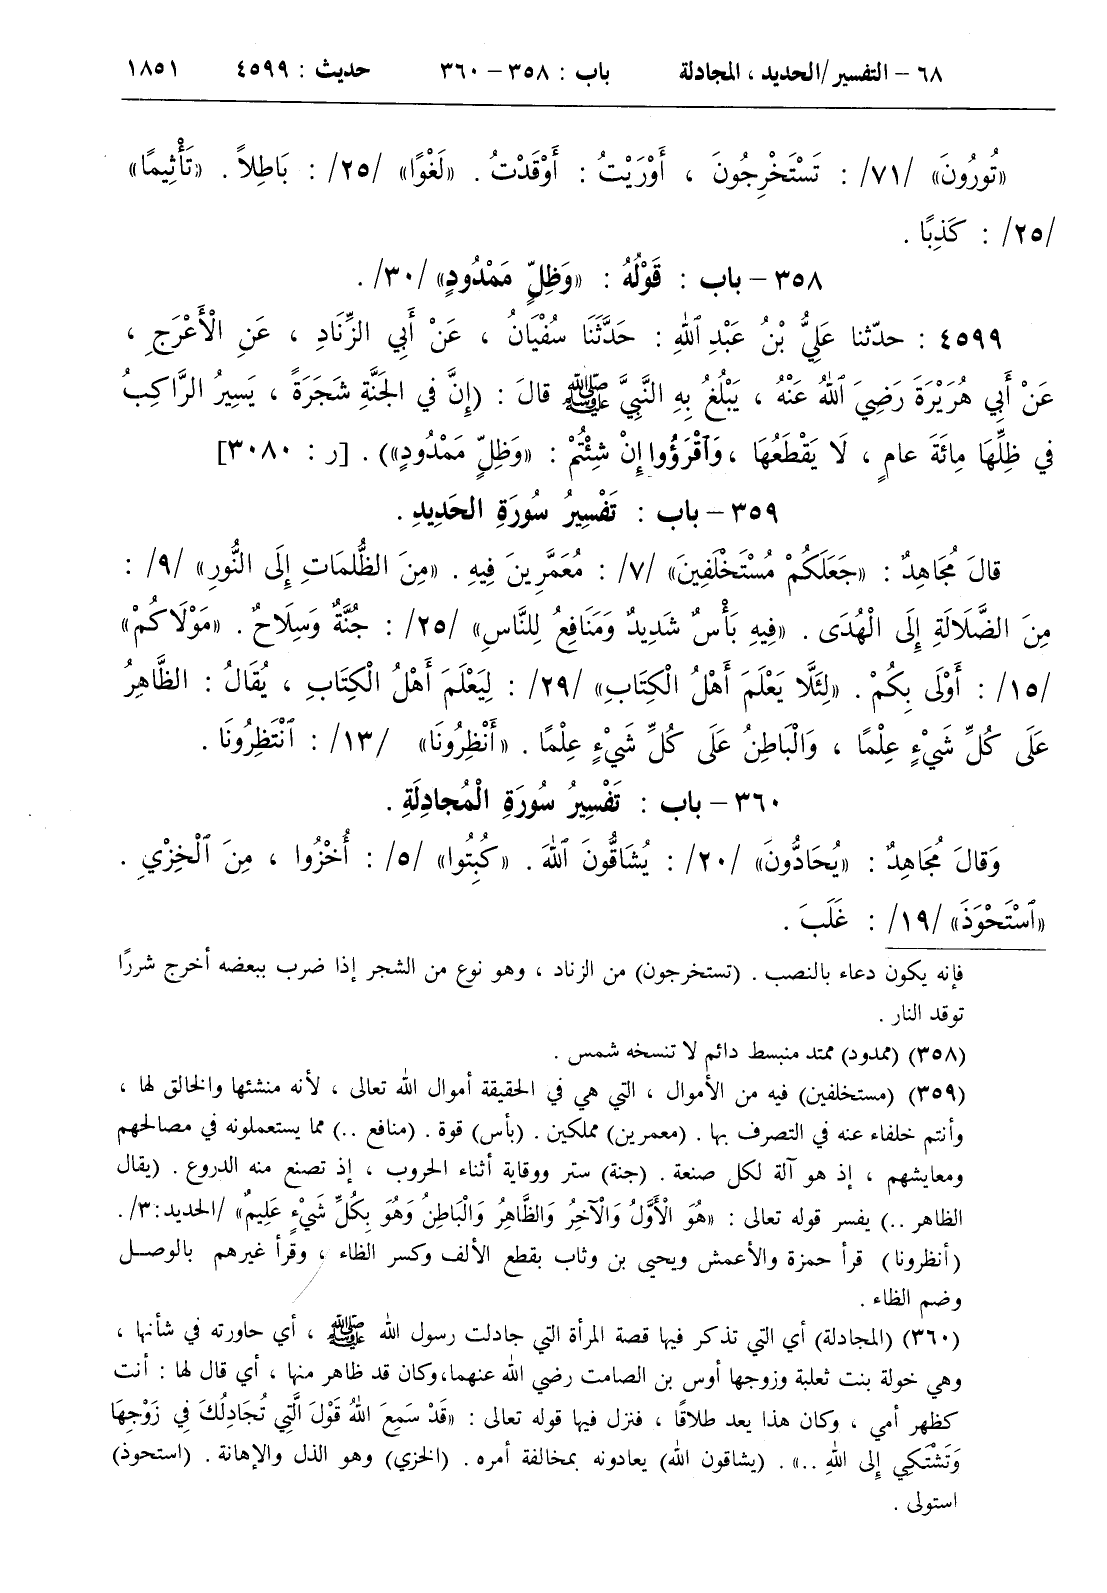 ٦٨ – التفسير/الحديد ، المجادلة باب : ٣٥٨ – ٣٦٠ حديث : ٤٥٩٩ ١٨٥١
«تُورُونَ» /٧١/ : تَسْتَخْرِجُونَ ، أَوْرَيْتُ : أَوْقَدْتُ . «لَغْوًا» /٢٥/ : بَاطِلاً . «تَأْثِيمًا»
/٢٥/ : كَذِبًا .
٣٥٨ – باب : قَوْلُهُ : «وَظِلٍّ مَمْدُودٍ» /٣٠/ .
٤٥٩٩ : حدّثنا عَلِيُّ بْنُ عَبْدِ ٱللهِ : حَدَّثَنَا سُفْيَانُ ، عَنْ أَبِي الزِّنَادِ ، عَنِ الْأَعْرَجِ ،
عَنْ أَبِي هُرَيْرَةَ رَضِيَ ٱللهُ عَنْهُ ، يَبْلُغُ بِهِ النَّبِيَّ ﷺ قالَ : (إِنَّ في الجَنَّةِ شَجَرَةً ، يَسِيرُ الرَّاكِبُ
في ظِلِّهَا مِائَةَ عامٍ ، لَا يَقْطَعُهَا ، وَٱقْرَؤُوا إِنْ شِئْتُمْ : «وَظِلٍّ مَمْدُودٍ») . [ر : ٣٠٨٠]
٣٥٩ – باب : تَفْسِيرُ سُورَةِ الحَدِيدِ .
قالَ مُجَاهِدٌ : «جَعَلَكُمْ مُسْتَخْلَفِينَ» /٧/ : مُعَمَّرِينَ فِيهِ . «مِنَ الظُّلمَاتِ إِلَى النُّورِ» /٩/ :
مِنَ الضَّلَالَةِ إِلَى الْهُدَى . «فِيهِ بَأْسٌ شَدِيدٌ وَمَنَافِعُ لِلنَّاسِ» /٢٥/ : جُنَّةٌ وَسِلَاحٌ . «مَوْلَاكُمْ»
/١٥/ : أَوْلَى بِكُمْ . «لِئَلَّا يَعْلَمَ أَهْلُ الْكِتَابِ» /٢٩/ : لِيَعْلَمَ أَهْلُ الْكِتَابِ ، يُقَالُ : الظَّاهِرُ
عَلَى كُلِّ شَيْءٍ عِلْمًا ، وَالْبَاطِنُ عَلَى كُلِّ شَيْءٍ عِلْمًا . «أَنْظِرُونَا» /١٣/ : ٱنْتَظِرُونَا .
٣٦٠ – باب : تَفْسِيرُ سُورَةِ الْمُجادِلَةِ .
وَقالَ مُجَاهِدٌ : «يُحَادُّونَ» /٢٠/ : يُشَاقُّونَ ٱللهَ . «كُبِتُوا» /٥/ : أُخْزُوا ، مِنَ ٱلْخِزْيِ .
«ٱسْتَحْوَذَ» /١٩/ : غَلَبَ .
فإنه يكون دعاء بالنصب . (تستخرجون) من الزناد ، وهو نوع من الشجر إذا ضرب ببعضه أخرج شررًا
توقد النار .
(٣٥٨) (ممدود) ممتد منبسط دائم لا تنسخه شمس .
(٣٥٩) (مستخلفين) فيه من الأموال ، التي هي في الحقيقة أموال الله تعالى ، لأنه منشئها والخالق لها ،
وأنتم خلفاء عنه في التصرف بها . (معمرين) مملكين . (بأس) قوة . (منافع ..) مما يستعملونه في مصالحهم
ومعايشهم ، إذ هو آلة لكل صنعة . (جنة) ستر ووقاية أثناء الحروب ، إذ تصنع منه الدروع . (يقال
الظاهر ..) يفسر قوله تعالى : «هُوَ الْأَوَّلُ وَالْآخِرُ وَالظَّاهِرُ وَالْبَاطِنُ وَهُوَ بِكُلِّ شَيْءٍ عَلِيمٌ» /الحديد:٣/ .
(أنظرونا) قرأ حمزة والأعمش ويحيى بن وثاب بقطع الألف وكسر الظاء ، وقرأ غيرهم بالوصل
وضم الظاء .
(٣٦٠) (المجادلة) أي التي تذكر فيها قصة المرأة التي جادلت رسول الله ﷺ ، أي حاورته في شأنها ،
وهي خولة بنت ثعلبة وزوجها أوس بن الصامت رضي الله عنهما،وكان قد ظاهر منها ، أي قال لها : أنت
كظهر أمي ، وكان هذا يعد طلاقًا ، فنزل فيها قوله تعالى : «قَدْ سَمِعَ اللهُ قَوْلَ الَّتِي تُجَادِلُكَ فِي زَوْجِهَا
وَتَشْتَكِي إِلَى اللهِ ..» . (يشاقون الله) يعادونه بمخالفة أمره . (الخزي) وهو الذل والإهانة . (استحوذ)
استولى .